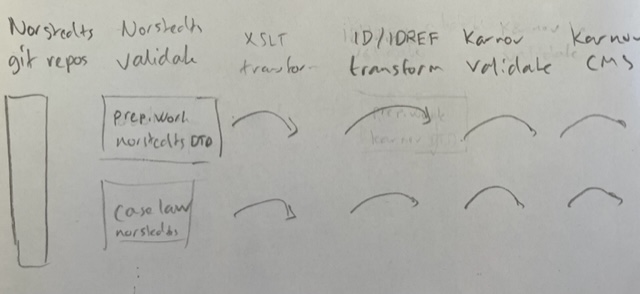 Norstedts
git repos
Norstedts
validate
XSLT
transform
ID/IDREF
transform
Karnov
validate
Karnov
CMS
prep.work
norstedts DTD
case law
norstedts